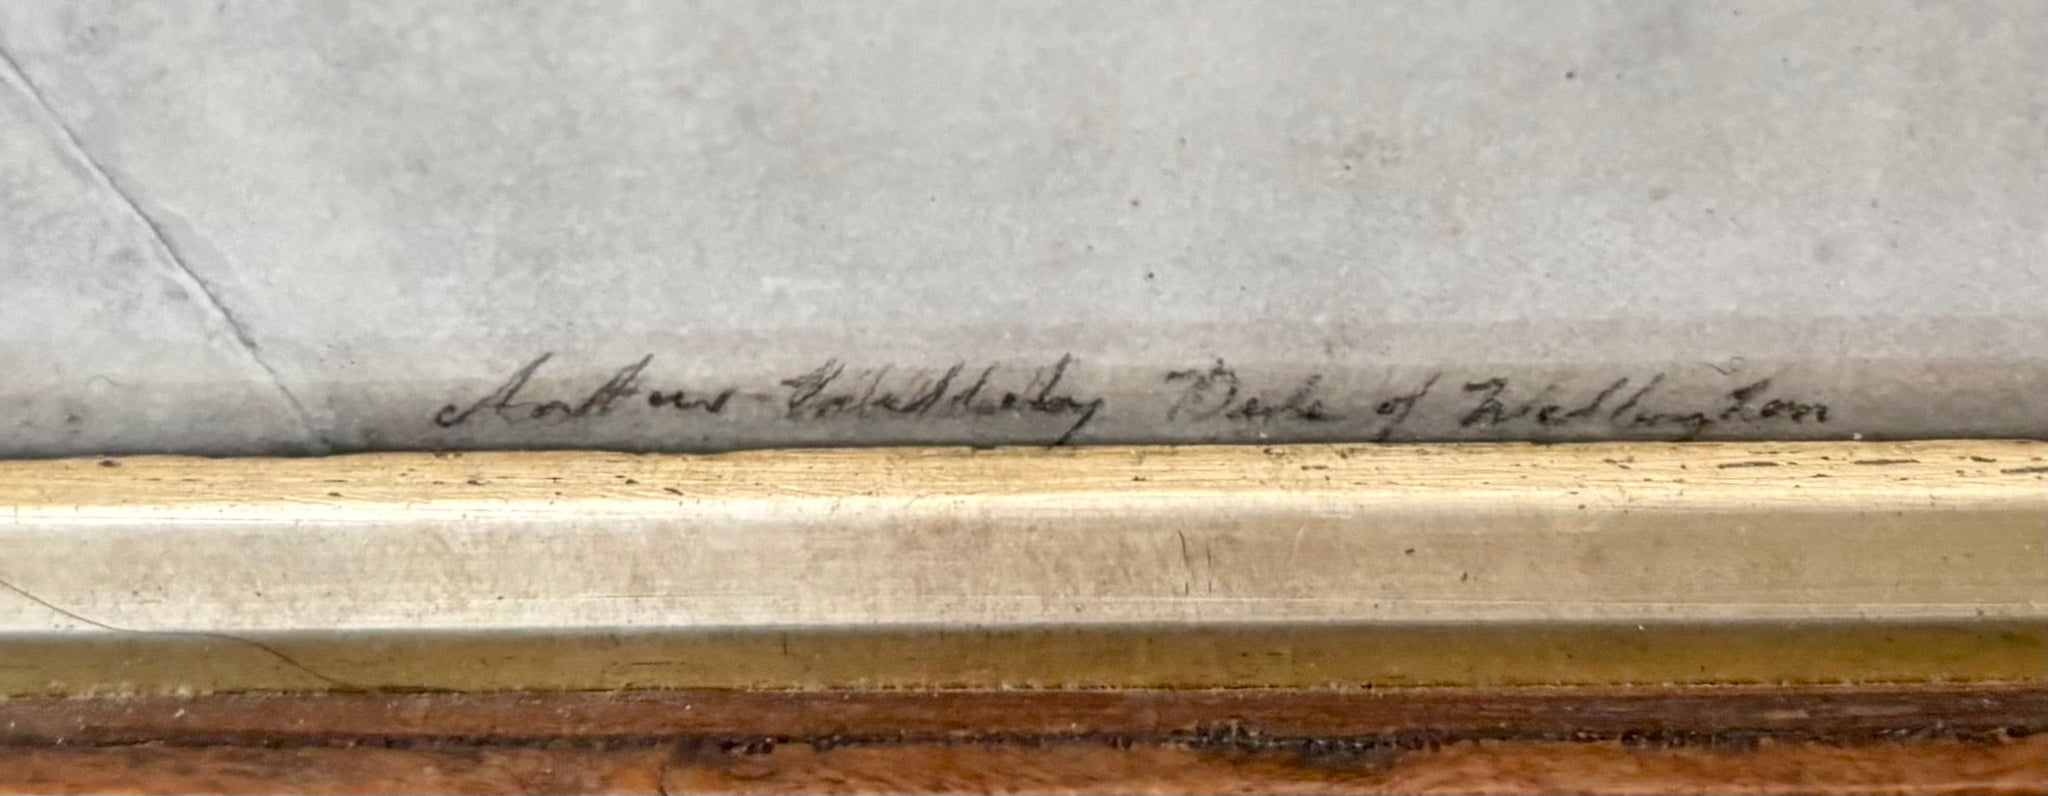 Arthur Wellesley Duke of Wellington